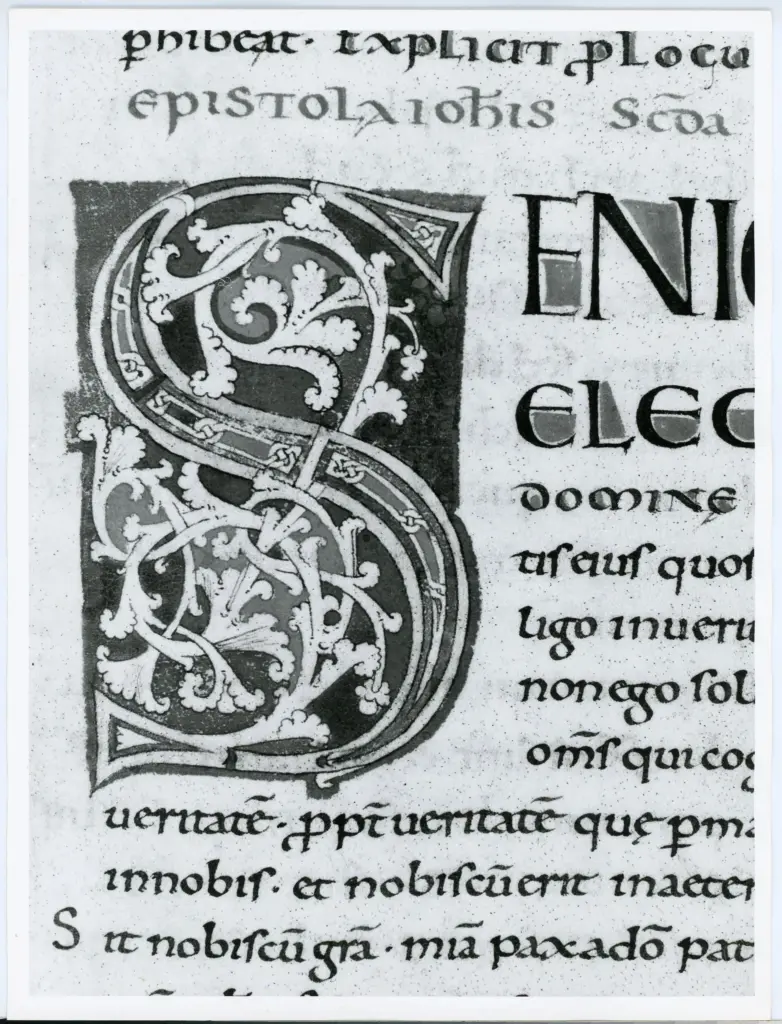 phibeat. Explicit ꝓlocu
epistola iohis scda
SENIO
ELEC
domine
tis eius quos
ligo inueri
non ego sol
om̄s qui cog
ueritatē. ꝓpt̄ ueritatē quę ꝑma
in nobis. et nobiscū erit in aeter
Sit nobiscū grā. miā pax a dō pat